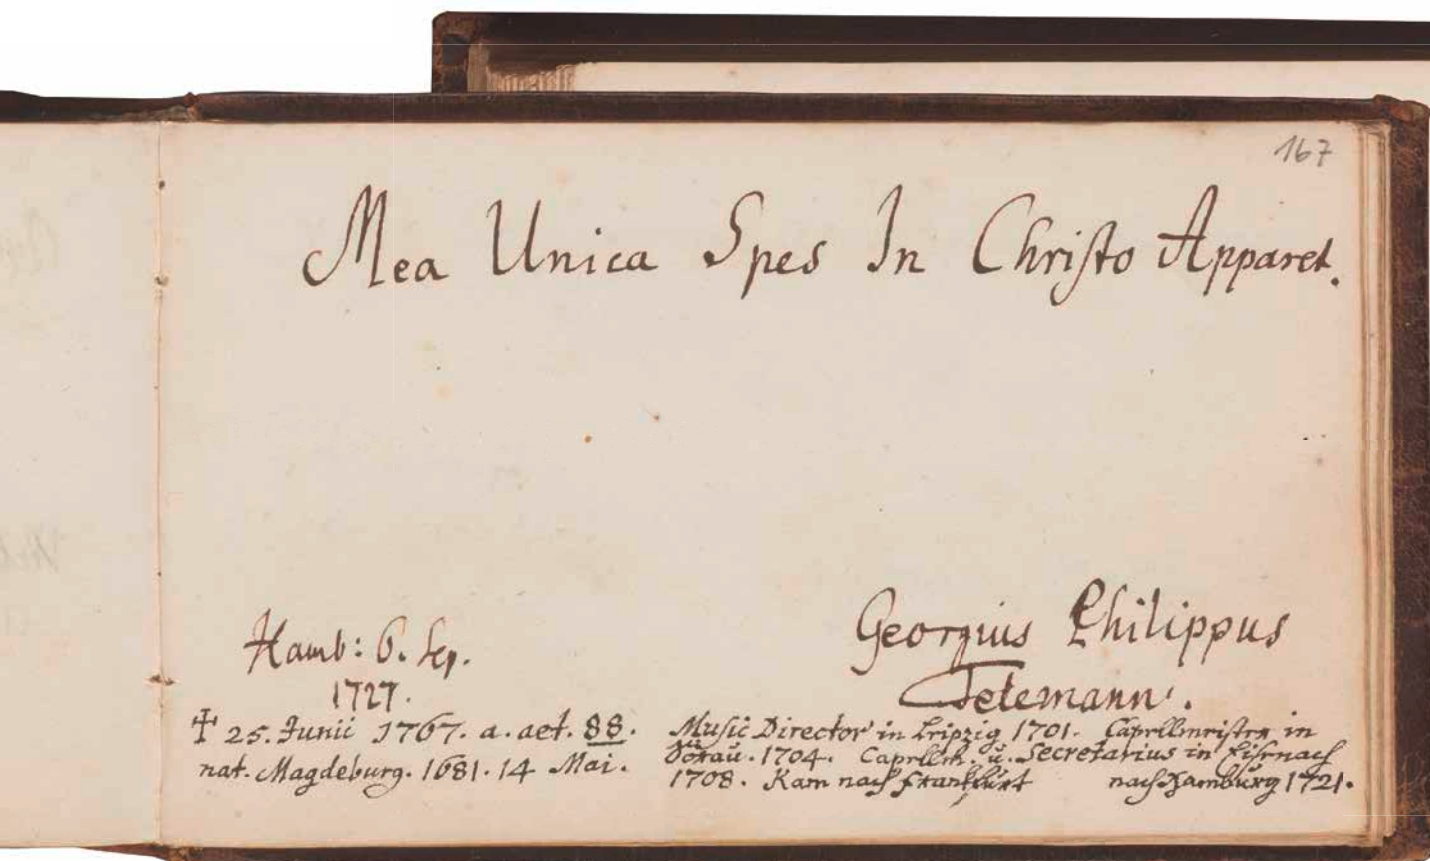 167
Mea Unica Spes In Christo Apparet.
Hamb: 6. Sep.
1727.
Georgius Philippus
Telemann.
† 25. Junii 1767. a. aet. 88.
nat. Magdeburg. 1681. 14 Mai.
Music Director in Leipzig 1701. Capellmeister in
Sorau. 1704. Capellm. u. Secretarius in Eisenach
1708. Kam nach Frankfurt nach Hamburg 1721.